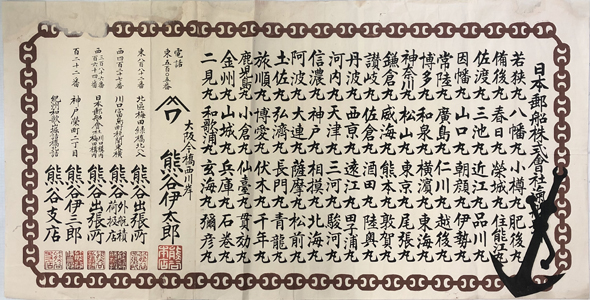 日本郵船株式會社
若狭丸 八幡丸 小樽丸 肥後丸
備後丸 春日丸 榮城丸 住江丸
佐渡丸 三池丸 近江丸 品川丸
因幡丸 山口丸 朝顔丸 伊勢丸
常陸丸 廣島丸 仁川丸 越後丸
博多丸 和泉丸 横濱丸 東海丸
神奈川丸 松山丸 東京丸 尾張丸
鎌倉丸 威海丸 熊本丸 敦賀丸
讃岐丸 佐倉丸 酒田丸 陸奥丸
丹波丸 西京丸 遠江丸 田子浦丸
河内丸 天津丸 三河丸 駿河丸
信濃丸 神戸丸 相模丸 北海丸
阿波丸 大連丸 薩摩丸 松前丸
土佐丸 弘濟丸 長門丸 青龍丸
旅順丸 博愛丸 伏木丸 千年丸
鹿児島丸 小倉丸 仙臺丸
金州丸 山城丸 兵庫丸 石巻丸
二見丸 和歌浦丸 玄海丸 彌彦丸
大阪今橋西川岸
熊谷伊太郎
電話
北區梅田 熊谷出張所
熊谷 外航積荷扱店
熊谷出張所
百二十二番 神戸榮町二丁目 熊谷伊三郎
熊谷支店